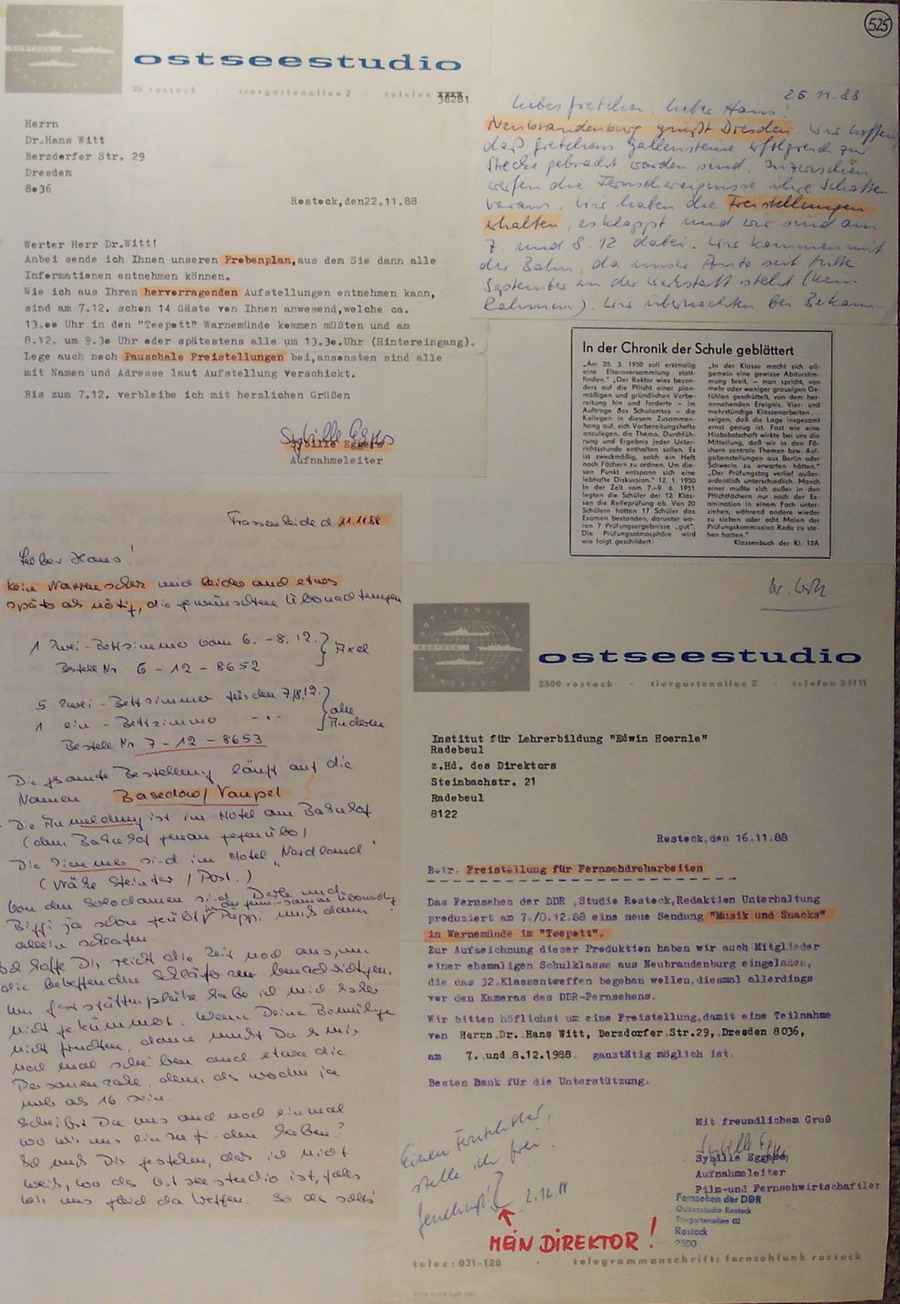 525
ostseestudio
25 rostock · tiergartenallee 2 · telefon
38281
Herrn
Dr.Hans Witt
Berzdorfer Str. 29
Dresden
8o36
Rostock,den22.11.88
Werter Herr Dr.Witt!
Anbei sende ich Ihnen unseren Probenplan,aus dem Sie dann alle
Informationen entnehmen können.
Wie ich aus Ihren hervorragenden Aufstellungen entnehmen kann,
sind am 7.12. schon 14 Gäste von Ihnen anwesend,welche ca.
13.oo Uhr in den "Teepott" Warnemünde kommen müßten und am
8.12. um 9.3o Uhr oder spätestens alle um 13.3o.Uhr (Hintereingang).
Lege auch noch Pauschale Freistellungen bei,ansonsten sind alle
mit Namen und Adresse laut Aufstellung verschickt.
Bis zum 7.12. verbleibe ich mit herzlichen Grüßen
Sybille Eggers
Aufnahmeleiter
25 11.88
Liebes Gretchen, lieber Hans!
Neubrandenburg grüßt Dresden. Wir hoffen,
daß Gretchens Gallensteine erfolgreich zur
Strecke gebracht worden sind. Inzwischen
werfen die Fernsehereignisse ihre Schatten
voraus. Wir haben die Freistellungen
erhalten, es klappt und wir sind am
7. und 8.12 dabei. Wir kommen mit
der Bahn, da unser Auto seit Mitte
September in der Werkstatt steht (kein
Rahmen). Wir übernachten bei Bekann-
In der Chronik der Schule geblättert
„Am 25. 3. 1950 soll erstmalig
eine Elternversammlung statt-
finden." „Der Rektor wies beson-
ders auf die Pflicht einer plan-
mäßigen und gründlichen Vorbe-
reitung hin und forderte – im
Auftrage des Schulamtes – die
Kollegen in diesem Zusammen-
hang auf, sich Vorbereitungshefte
anzulegen, die Thema, Durchfüh-
rung und Ergebnis jeder Unter-
richtsstunde enthalten sollen. Es
ist zweckmäßig, solch ein Heft
nach Fächern zu ordnen. Um die-
sen Punkt entspann sich eine
lebhafte Diskussion." 12. 1. 1950
In der Zeit vom 7.–9. 6. 1951
legten die Schüler der 12. Klas-
sen die Reifeprüfung ab. Von 20
Schülern hatten 17 Schüler das
Examen bestanden, darunter wa-
ren 7 Prüfungsergebnisse „gut".
Die Prüfungsatmosphäre wird
wie folgt geschildert:
„In der Klasse macht sich all-
gemein eine gewisse Abiturstim-
mung breit. – man spricht, von
mehr oder weniger grausigen Ge-
fühlen geschüttelt, von dem her-
annahenden Ereignis. Vier- und
mehrstündige Klassenarbeiten
zeigen, daß die Lage insgesamt
ernst genug ist. Fast wie eine
Hiobsbotschaft wirkte bei uns die
Mitteilung, daß wir in den Fä-
chern zentrale Themen bzw. Auf-
gabenstellungen aus Berlin oder
Schwerin zu erwarten hätten."
„Der Prüfungstag verlief außer-
ordentlich unterschiedlich. Manch
einer mußte sich außer in den
Pflichtfächern nur noch der Ex-
amination in einem Fach unter-
ziehen, während andere wieder
zu sieben oder acht Malen der
Prüfungskommission Rede zu ste-
hen hatten."
Klassenbuch der Kl. 12A
Trassenheide d. 11.11.88
Lieber Hans!
kein Narrenscherz und leider auch etwas
später als nötig, die gewünschten Übernachtungen
1 Zwei-Bettzimmer vom 6.-8.12. } Axel
Bestell Nr. 6-12-8652
5 Zwei-Bettzimmer für den 7/8.12. } alle
1 ein-Bettzimmer -"- Anderen
Bestell Nr 7-12-8653
Die gesamte Bestellung läuft auf die
Namen Basedow/Vaupel
Die Anmeldung ist im Hotel am Bahnhof
(dem Bahnhof genau gegenüber)
Die Zimmer sind im Hotel „Nordland"
(Nähe Steintor/Post.)
Von den Solodamen sind Dörte und
Biggi ja schon geübt in der gemeinsamen Übernachtg.
allein schlafen
Ich hoffe Dir reicht die Zeit noch aus, um
die betreffenden Schläfer zu benachrichtigen.
Um Gaststättenplätze habe ich mich bisher
nicht gekümmert. Wenn Deine Bemühungen
nicht fruchten, dann mußt Du es mir
noch mal schreiben und etwa die
Personenzahl, denn das werden ja
mehr als 16 sein.
Schreibst Du uns auch noch einmal
wo wir uns einzufinden haben?
Ich muß Dir gestehen, daß ich nicht
weiß, wo das Ostseestudio ist, falls
wir uns gleich da treffen. So das sollte
Dr. Witt
ostseestudio
2500 rostock · tiergartenallee 2 · telefon 36111
Institut für Lehrerbildung "Edwin Hoernle"
Radebeul
z.Hd. des Direktors
Steinbachstr. 21
Radebeul
8122
Rostock,den 16.11.88
Betr. Freistellung für Fernsehdreharbeiten
Das Fernsehen der DDR ,Studio Rostock,Redaktion Unterhaltung
produziert am 7./8.12.88 eine neue Sendung "Musik und Snacks"
in Warnemünde im "Teepott".
Zur Aufzeichnung dieser Produktion haben wir auch Mitglieder
einer ehemaligen Schulklasse aus Neubrandenburg eingeladen,
die das 32.Klassentreffen begehen wollen,diesmal allerdings
vor den Kameras des DDR-Fernsehens.
Wir bitten höflichst um eine Freistellung,damit eine Teilnahme
von Herrn.Dr. Hans Witt, Berzdorfer.Str.29, Dresden 8036,
am 7. und 8.12.1988 ganztätig möglich ist.
Besten Dank für die Unterstützung.
Mit freundlichem Gruß
Sybille Eggers
Aufnahmeleiter
Film-und Fernsehwirtschaftler
Fernsehen der DDR
Ostseestudio Rostock
Tiergartenallee 02
Rostock
2500
Einen Fernsehstar,
stelle ich frei.
Genehmigt! 2.12.88
MEIN DIREKTOR!
telex: 031-128 · telegrammanschrift: fernsehfunk rostock